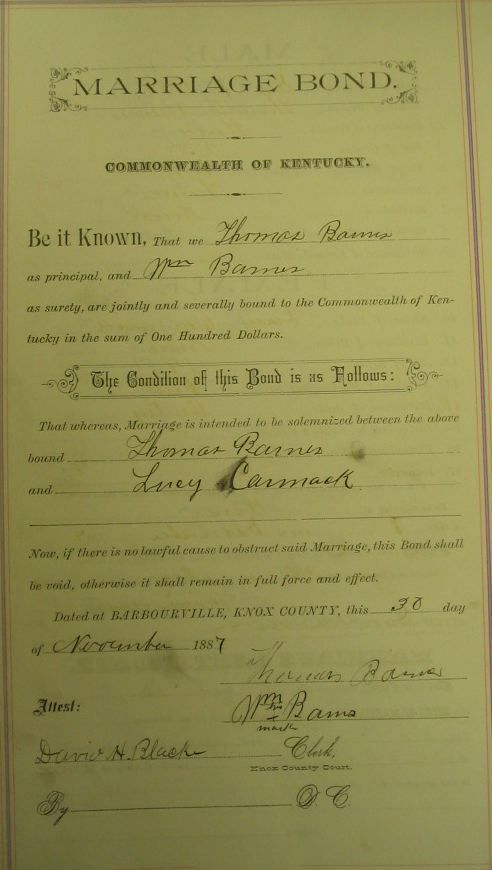 MARRIAGE BOND.
COMMONWEALTH OF KENTUCKY.
Be it Known, That we Thomas Barnes
as principal, and Wm Barnes
as surety, are jointly and severally bound to the Commonwealth of Ken-
tucky in the sum of One Hundred Dollars.
The Condition of this Bond is as Follows:
That whereas, Marriage is intended to be solemnized between the above
bound Thomas Barnes
and Lucy Carmack
Now, if there is no lawful cause to obstruct said Marriage, this Bond shall
be void, otherwise it shall remain in full force and effect.
Dated at BARBOURVILLE, KNOX COUNTY, this 30 day
of November 1887
Thomas Barnes
Attest: Wm his x Barns
mark
David H. Black Clerk,
Knox County Court.
By D. C.